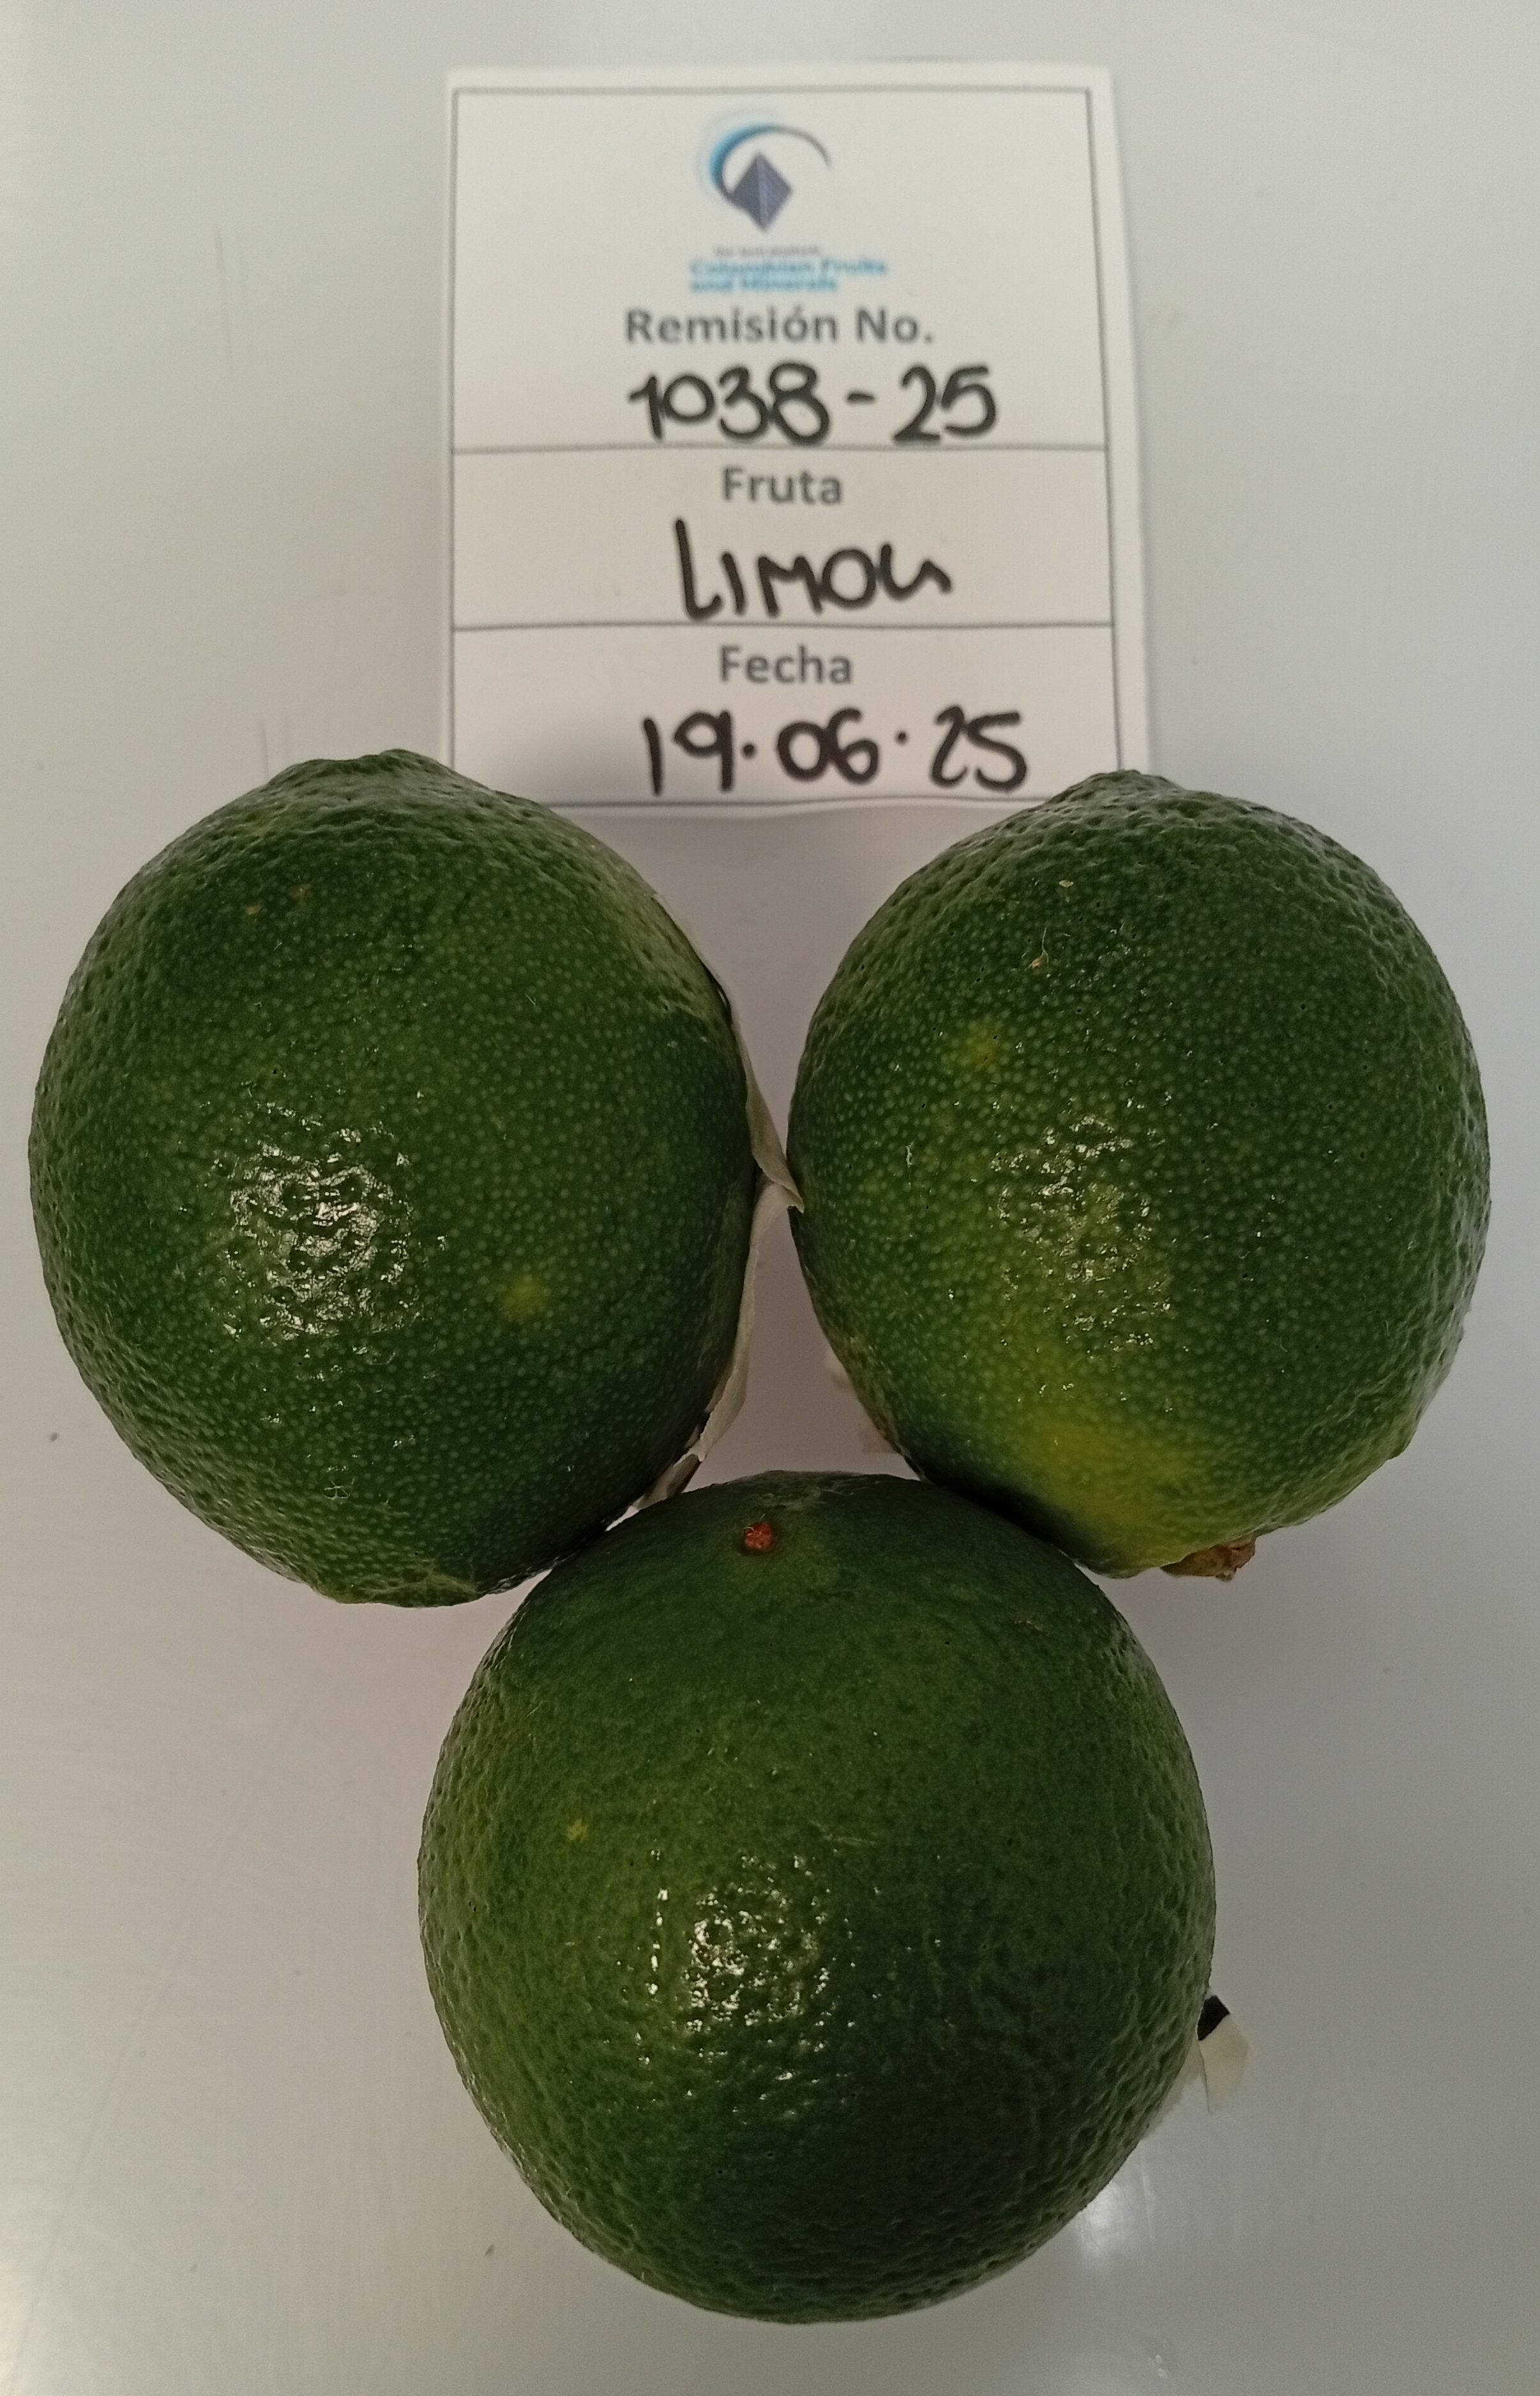 Colombian Fruits
and Minerals
Remisión No.
1038-25
Fruta
LIMON
Fecha
19.06.25